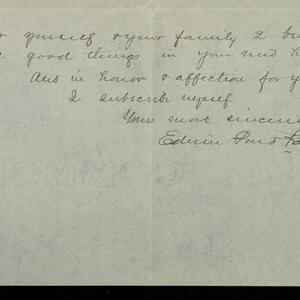 yourself & your family & 
good things in your new
And in honor & affection for
I subscribe myself
Yours most sincerel
Edwin Pond